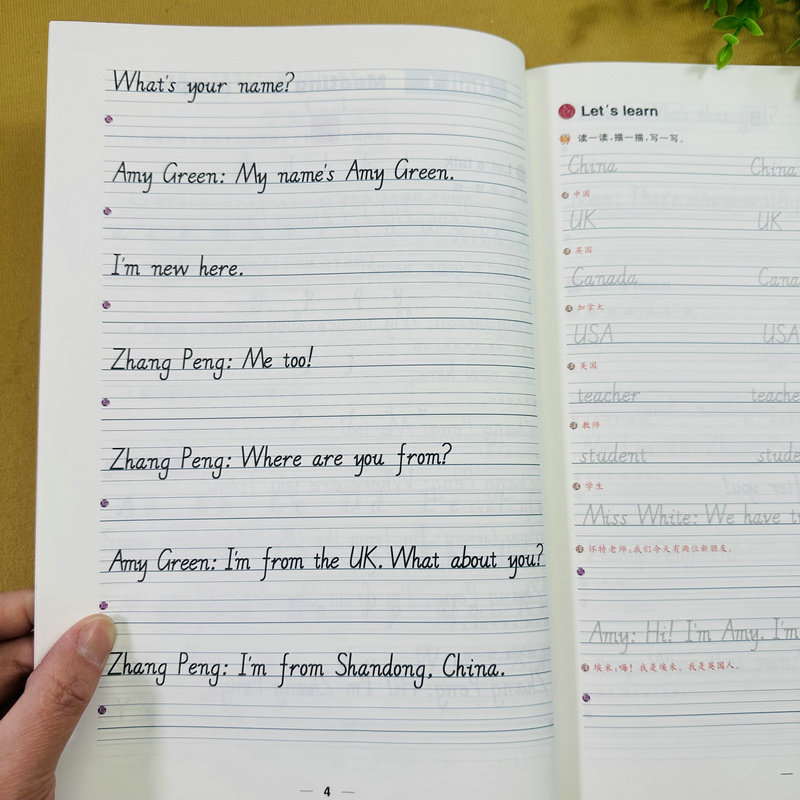 What's your name?
Amy Green: My name's Amy Green.
I'm new here.
Zhang Peng: Me too!
Zhang Peng: Where are you from?
Amy Green: I'm from the UK. What about you?
Zhang Peng: I'm from Shandong, China.
4
Let's learn
读一读，描一描，写一写。
China China
中国
UK UK
英国
Canada Cana
加拿大
USA USA
美国
teacher teache
教师
student stude
学生
Miss White: We have t
怀特老师：我们今天有两位新朋友。
Amy: Hi! I'm Amy. I'm
埃米：嗨！我是埃米。我是英国人。